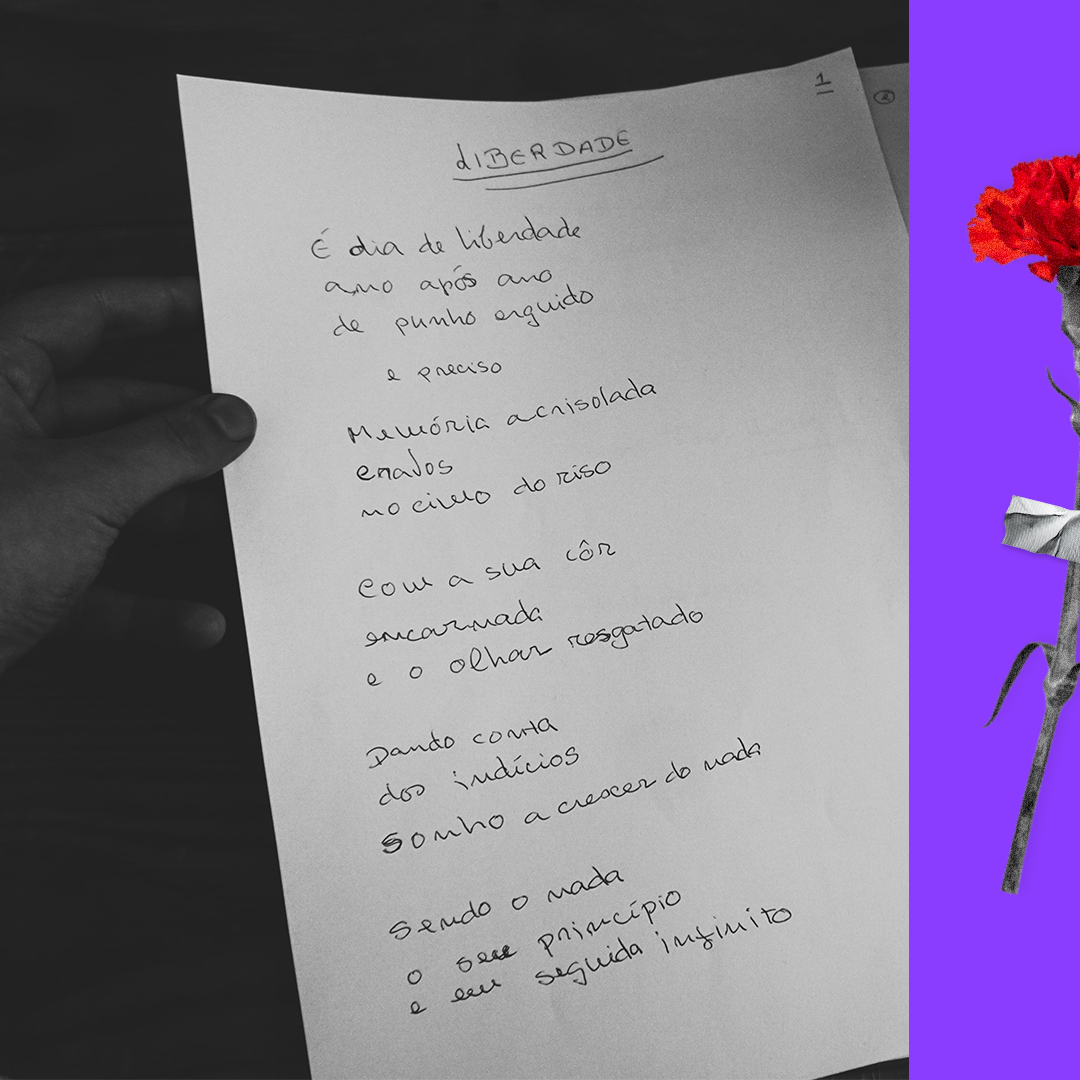 1
2
LIBERDADE
É dia de liberdade
ano após ano
de punho erguido
e preciso
Memória acrisolada
cravos
no cimo do riso
Com a sua côr
encarnada
e o olhar resgatado
Dando conta
dos indícios
Sonho a crescer do nada
Sendo o nada
o seu princípio
e em seguida infinito